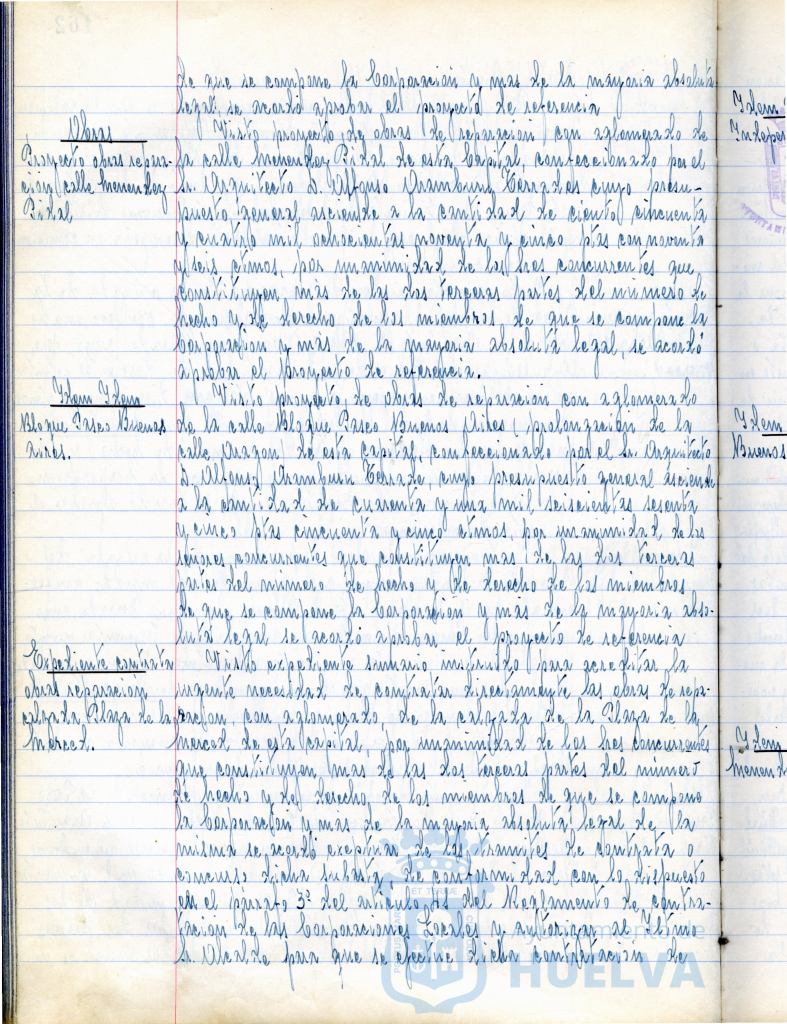 de que se compone la Corporación y mas de la mayoria absoluta
legal, se acordó aprobar el proyecto de referencia
Obras
Proyecto obras repara-
ción calle Menendez
Pidal
Visto proyecto de obras de reparación con aglomerado de
la calle Menendez Pidal de esta Capital, confeccionado por el
Sr. Arquitecto D. Alfonso Aramburu Terrades cuyo presu-
puesto general asciende a la cantidad de ciento cincuenta
y cuatro mil ochocientas noventa y cinco ptas con noventa
y seis ctmos, por unanimidad de los Sres concurrentes que
constituyen más de las dos terceras partes del número de
hecho y de derecho de los miembros de que se compone la
Corporación y más de la mayoria absoluta legal, se acordó
aprobar el proyecto de referencia.
Idem Idem
Bloque Paseo Buenos
Aires.
Visto proyecto de obras de reparación con aglomerado
de la calle Bloque Paseo Buenos Aires (prolongación de la
calle Aragon de esta capital, confeccionado por el Sr. Arquitecto
D. Alfonso Aramburu Terrado, cuyo presupuesto general asciende
a la cantidad de cuarenta y una mil seiscientas sesenta
y cinco ptas cincuenta y cinco ctmos, por unanimidad de los
señores concurrentes que constituyen mas de las dos terceras
partes del número de hecho y de derecho de los miembros
de que se compone la Corporación y más de la mayoria abso-
luta legal se acordó aprobar el proyecto de referencia
Expediente contrata
obras reparación
calzada Plaza de la
Merced.
Visto expediente sumario instruido para acreditar la
urgente necesidad de contratar directamente las obras de repa-
ración, con aglomerado de la calzada de la Plaza de la
Merced de esta capital, por unanimidad de los Sres concurrentes
que constituyen mas de las dos terceras partes del número
de hecho y de derecho de los miembros de que se compone
la Corporación y más de la mayoria absoluta legal de la
misma se acordó exceptuar de los tramites de contrata o
concurso dicha subasta de conformidad con lo dispuesto
en el párrafo 3º del articulo del Reglamento de contra-
tación de las Corporaciones Locales y autorizar al Iltmo
Sr. Alcalde para que se efectue dicha contratación de
Idem
Indepen
Idem
Buenos
Idem
Menend
Ayuntamiento de
HUELVA